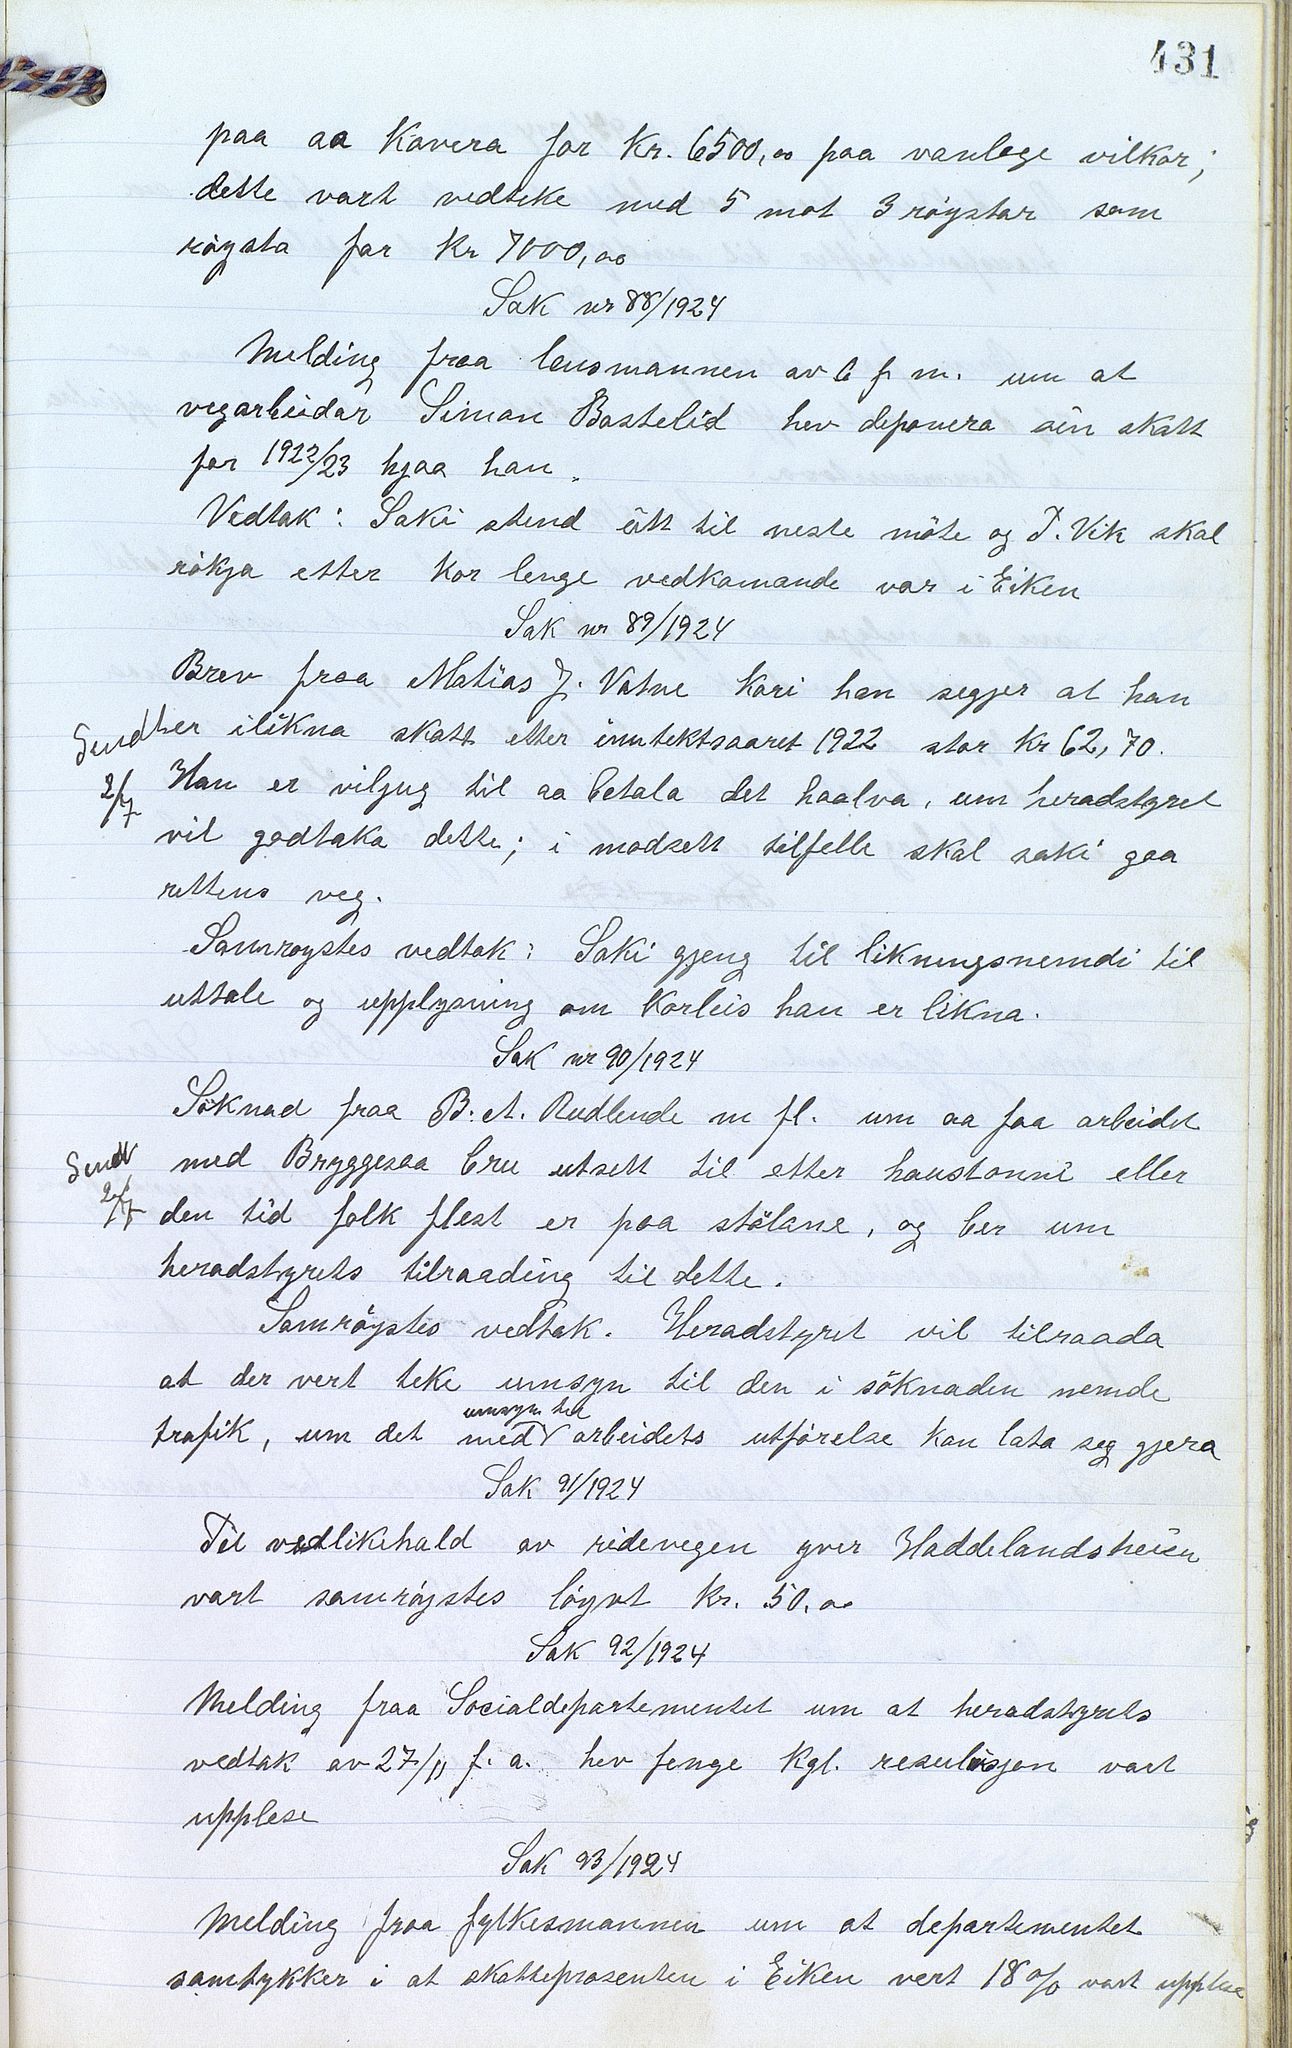 431
paa aa Kavera for Kr. 6500,00 paa vanlege vilkor;
dette vart vedteke med 5 mot 3 röystar som
röysta for Kr 7000,00
Sak nr 88/1924
Melding fraa lensmannen av 6 f m. um at
vegarbeidar Simon Bastelid hev deponera sin skatt
for 1922/23 hjaa han.
Vedtak: Saki stend ütt til neste möte og T. Vik skal
rökja etter Kor lenge vedkomande var i Eiken
Sak nr 89/1924
Brev fraa Matias J. Vatne Kori han segjer at han
Sendt er ilikna skatt etter inntektsaaret 1922 stor Kr 62,70.
2/7 Han er viljug til aa betala det haalva, um heradstyret
vil godtaka dette; i modsett tilfelle skal saki gaa
rettens veg.
Samroystes vedtak: Saki gjeng til likningsnemdi til
uttale og upplysning om Korleis han er likna.
Sak nr 90/1924
Söknad fraa B. A. Rudlende m fl. um aa faa arbeidet
Sendt med Bryggesaa bru utsett til etter haustonni eller
2/7 den tid folk flest er paa stölane, og ber um
heradstyrets tilraading til dette.
Samröystes vedtak. Heradstyret vil tilraada
at der vert teke umsyn til den i söknaden nemde
umsyn til
trafik, um det med arbeidets utförelse kan lata seg gjera
Sak 91/1924
Til vedlikehald av ridevegen yver Haddelandsheien
vart samröystes löyvt Kr. 50,00
Sak 92/1924
Melding fraa Socialdepartementet um at heradstyrets
vedtak av 27/11 f. a. hev fenge Kgl. resulosjon vart
upplese
Sak 93/1924
Melding fraa fylkesmannen um at departementet
samtykker i at skatteprosenten i Eiken vert 18 % vart upplese